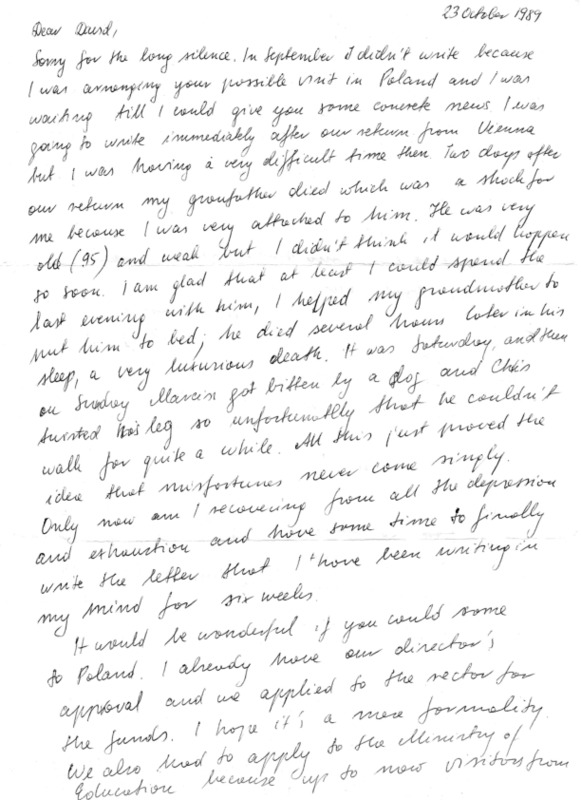 23 October 1989
Dear David,
Sorry for the long silence. In September I didn't write because
I was arranging your possible visit in Poland and I was
waiting till I could give you some concrete news. I was
going to write immediately after our return from Vienna
but I was having a very difficult time then. Two days after
our return my grandfather died which was a shock for
me because I was very attached to him. He was very
old (95) and weak but I didn't think it would happen
so soon. I am glad that at least I could spend the
last evening with him, I helped my grandmother to
put him to bed; he died several hours later in his
sleep, a very luxurious death. It was Saturday, and then
on Sunday Marcin got bitten by a dog and Chris
twisted his leg so unfortunatlly that he couldn't
walk for quite a while. All this just proved the
idea that misfortunes never come singly.
Only now am I recovering from all the depression
and exhaustion and have some time to finally
write the letter that I have been writing in
my mind for six weeks.
It would be wonderful if you could some
to Poland. I already have our director's
approval and we applied to the rector for
the funds. I hope it's a mere formality.
We also had to apply to the Ministry of
Education because up to now visitors from